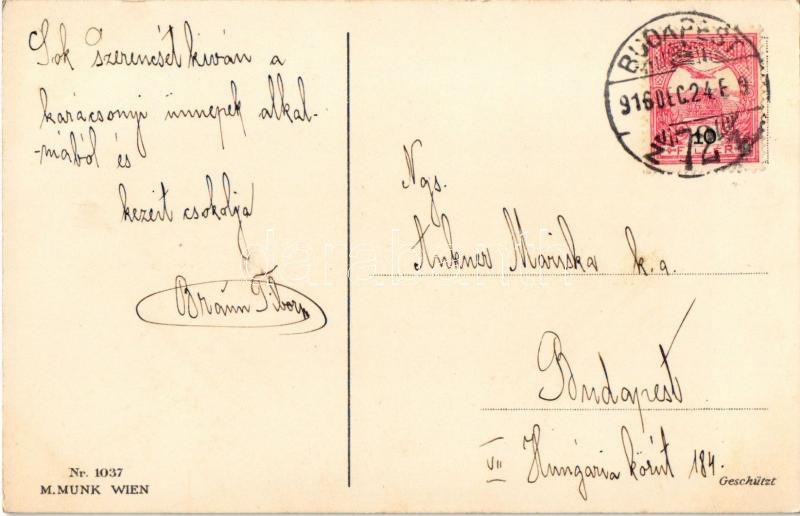 Sok szerencsét kiván a
karácsonyi ünnepek alkal-
-mából és
kezeit csokolja
Braun Tibor
Nr. 1037
M. MUNK WIEN
BUDAPEST
916 DEC. 24. E 9
72
10
FILLÉR
Ngs.
Mariska k. a.
Budapest
VII Hungária körút 184.
Geschützt
darabanth